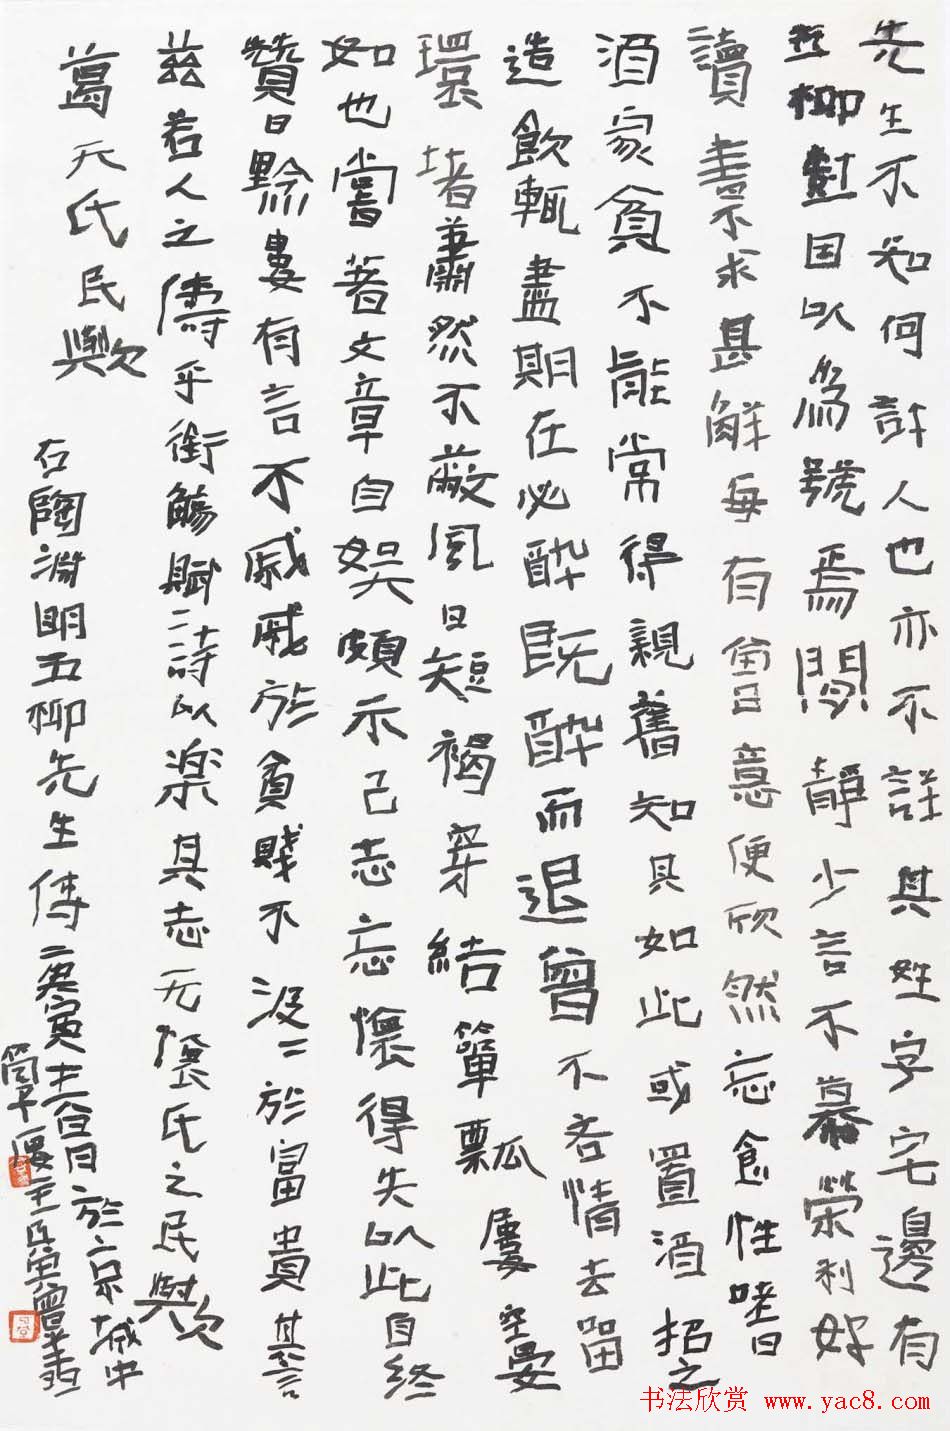 先生不知何許人也亦不詳其姓字宅邊有
五柳樹因以為號焉閒靜少言不慕榮利好
讀書不求甚解每有會意便欣然忘食性嗜
酒家貧不能常得親舊知其如此或置酒招之
造飲輒盡期在必醉既醉而退曾不吝情去留
環堵蕭然不蔽風日短褐穿結簞瓢屢空晏
如也嘗著文章自娛頗示己志忘懷得失以此自終
贊曰黔婁有言不戚戚於貧賤不汲汲於富貴其言
茲若人之儔乎銜觴賦詩以樂其志无懷氏之民歟
葛天氏民歟
右陶淵明五柳先生傳
庚寅
於京城中
书法欣赏 www.yac8.com